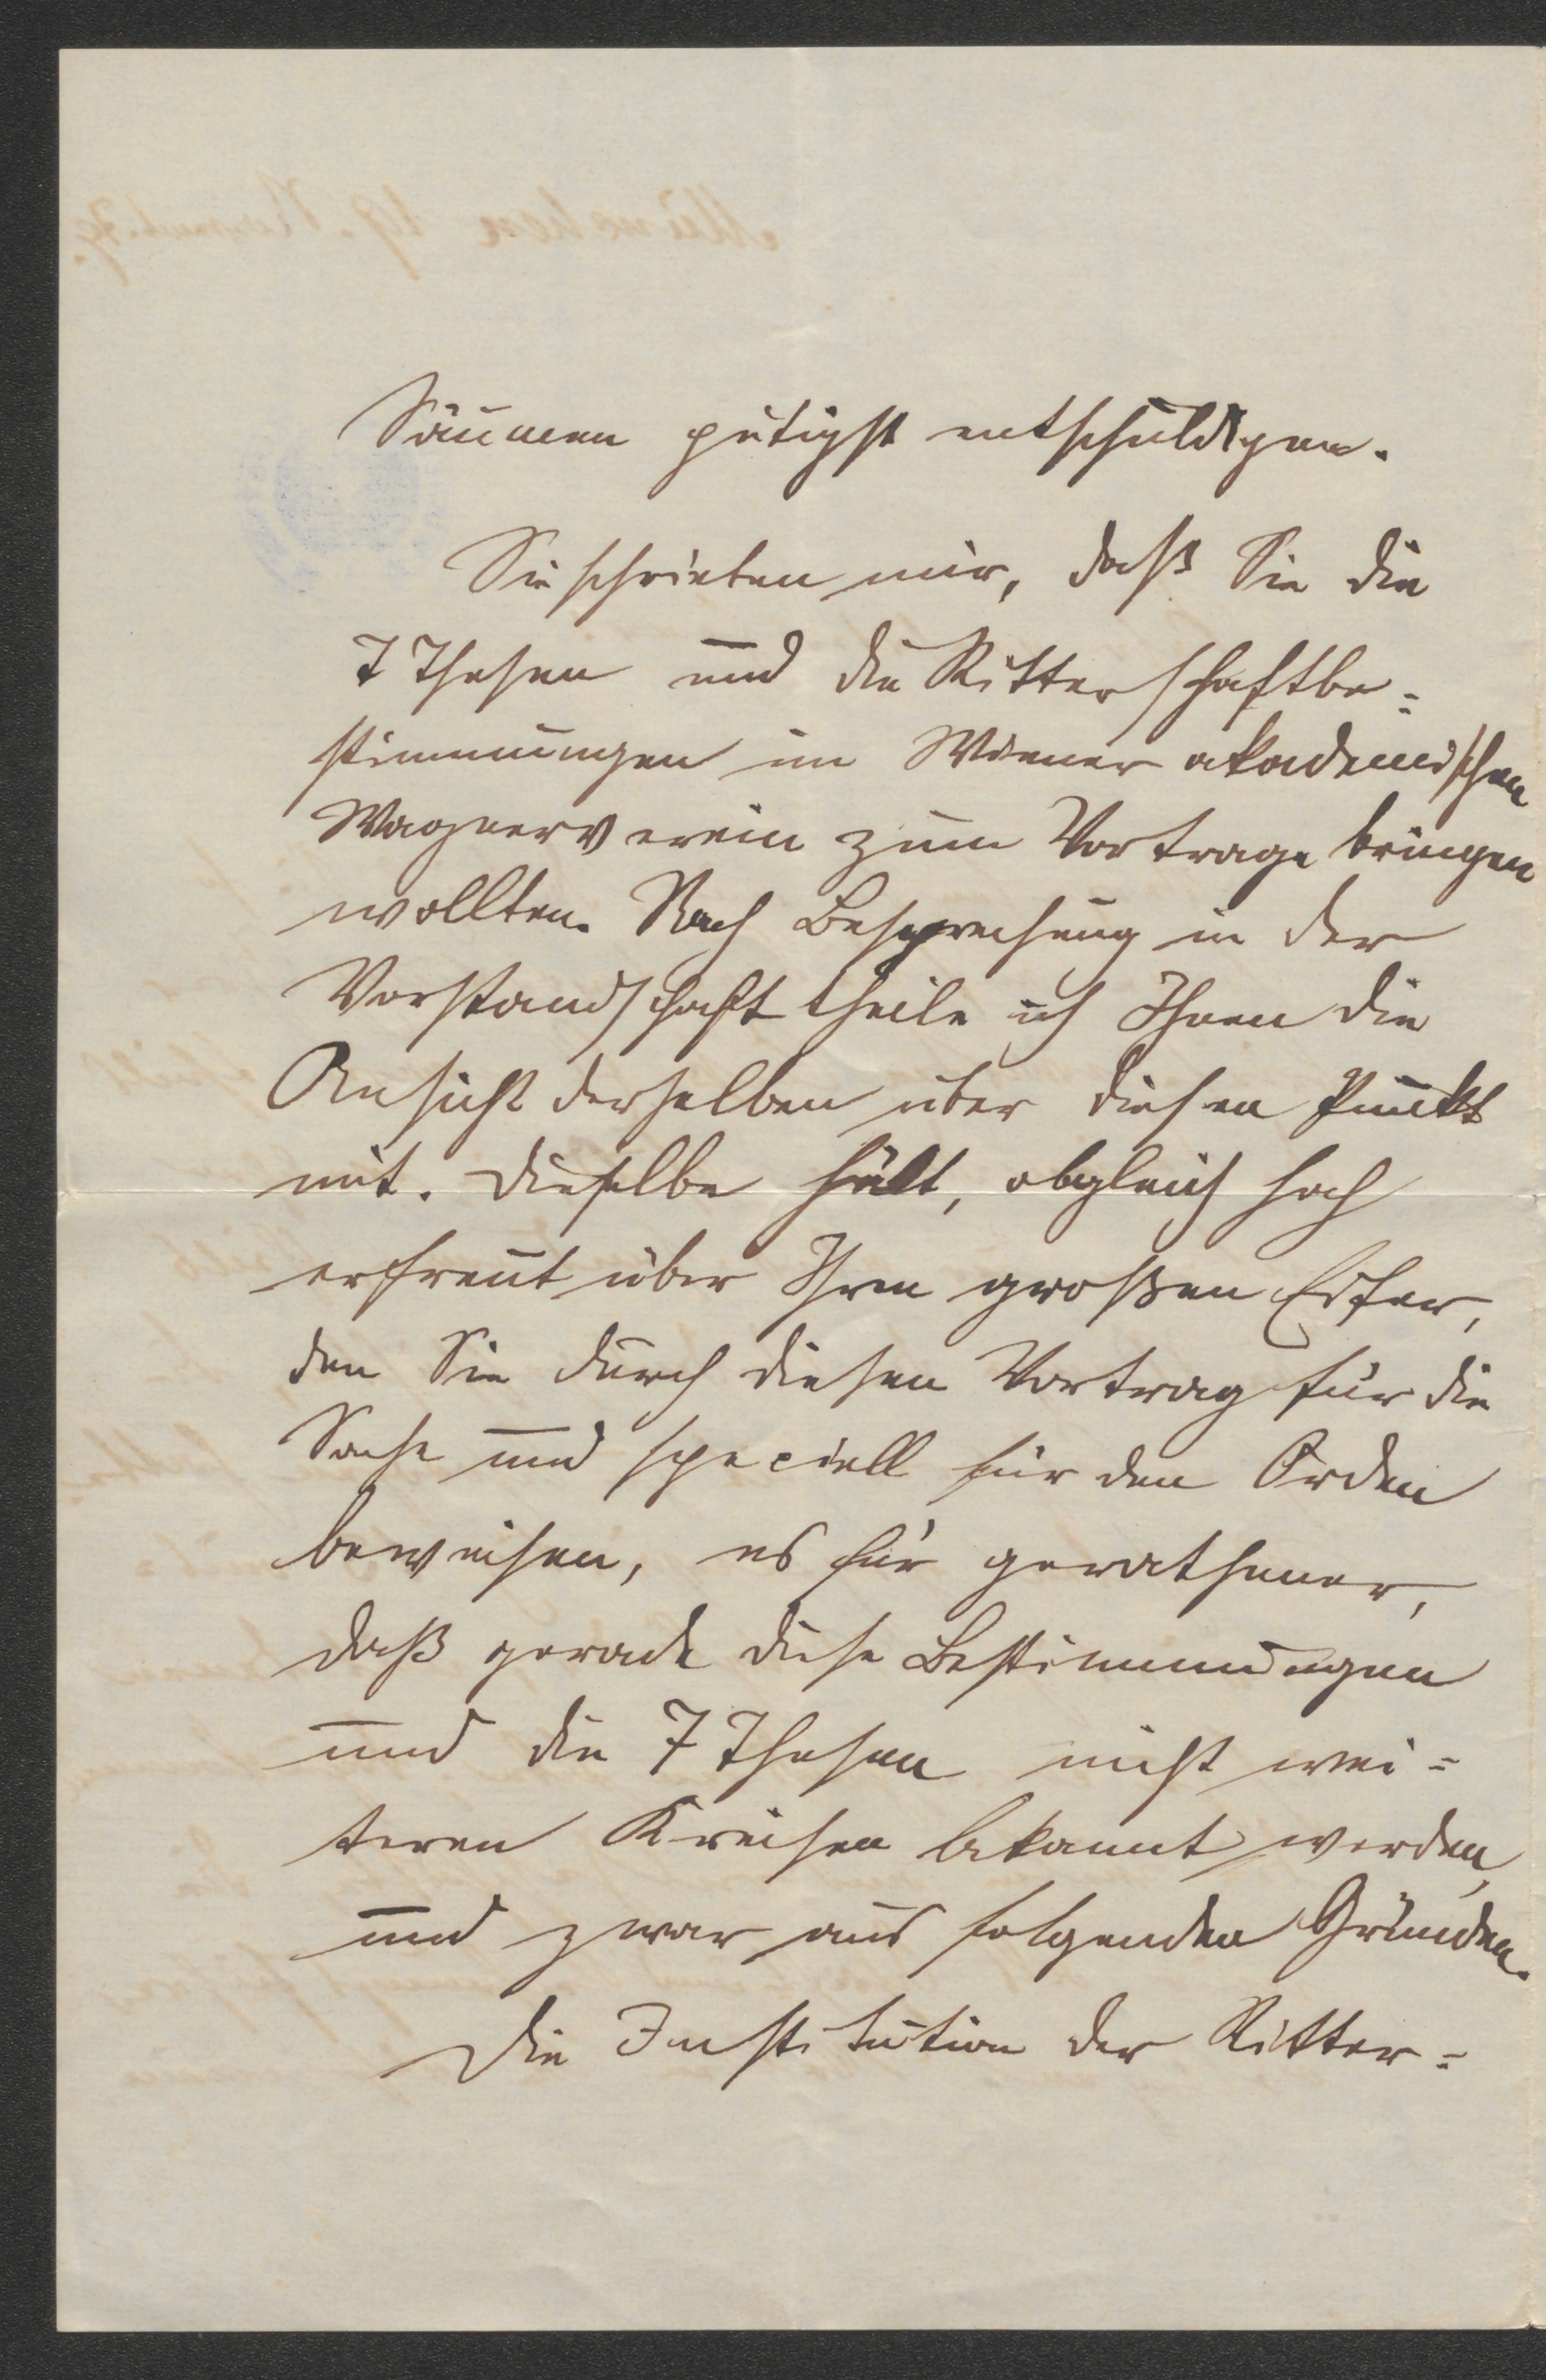 Säumen gütigst entschuldigen.
Sie schrieben mir, daß Sie die
7 Thesen und die Ritterschaftbe=
stimmungen im Wiener akademischen
Wagnerverein zum Vortrage bringen
wollten. Nach Besprechung in der
Vorstandschaft theile ich Ihnen die
Ansicht derselben über diesen Punkt
mit. Dieselbe hält, obgleich hoch
erfreut über Ihren großen Eifer,
den Sie durch diesen Vortrag für die
Sache und speciell für den Orden
beweisen, es für gerathener,
daß gerade diese Bestimmungen
und die 7 Thesen nicht wei=
teren Kreisen bekannt werden,
und zwar aus folgenden Gründen.
Die Institution der Ritter=